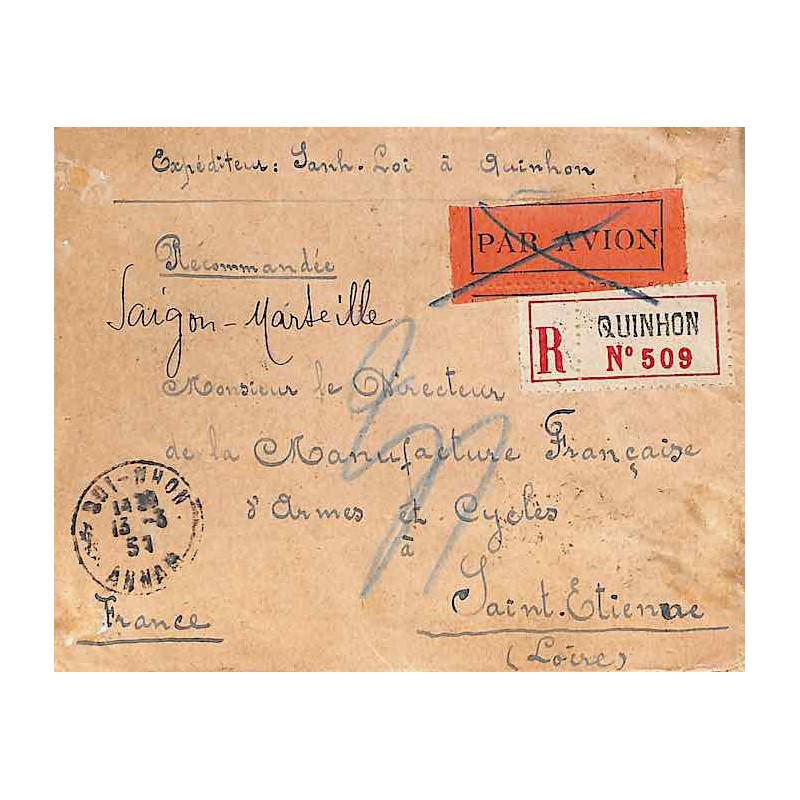 Expéditeur: Sanh-Loi à Quinhon
PAR AVION
Récommandée
Saigon-Marseille
R QUINHON
Nº 509
Monsieur le Directeur
de la Manufacture Française
d'Armes et Cyclès
à
QUI-NHON
13 -3
ANNAM
France
Saint-Etienne
(Loire)